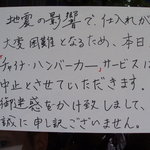 地震の影響で、仕入れが
大変困難となるため、本日
「チャイナ・ハンバーガー」サービスは
中止とさせていただきます。
御迷惑をかけ致しまして、
誠に申し訳ございません。